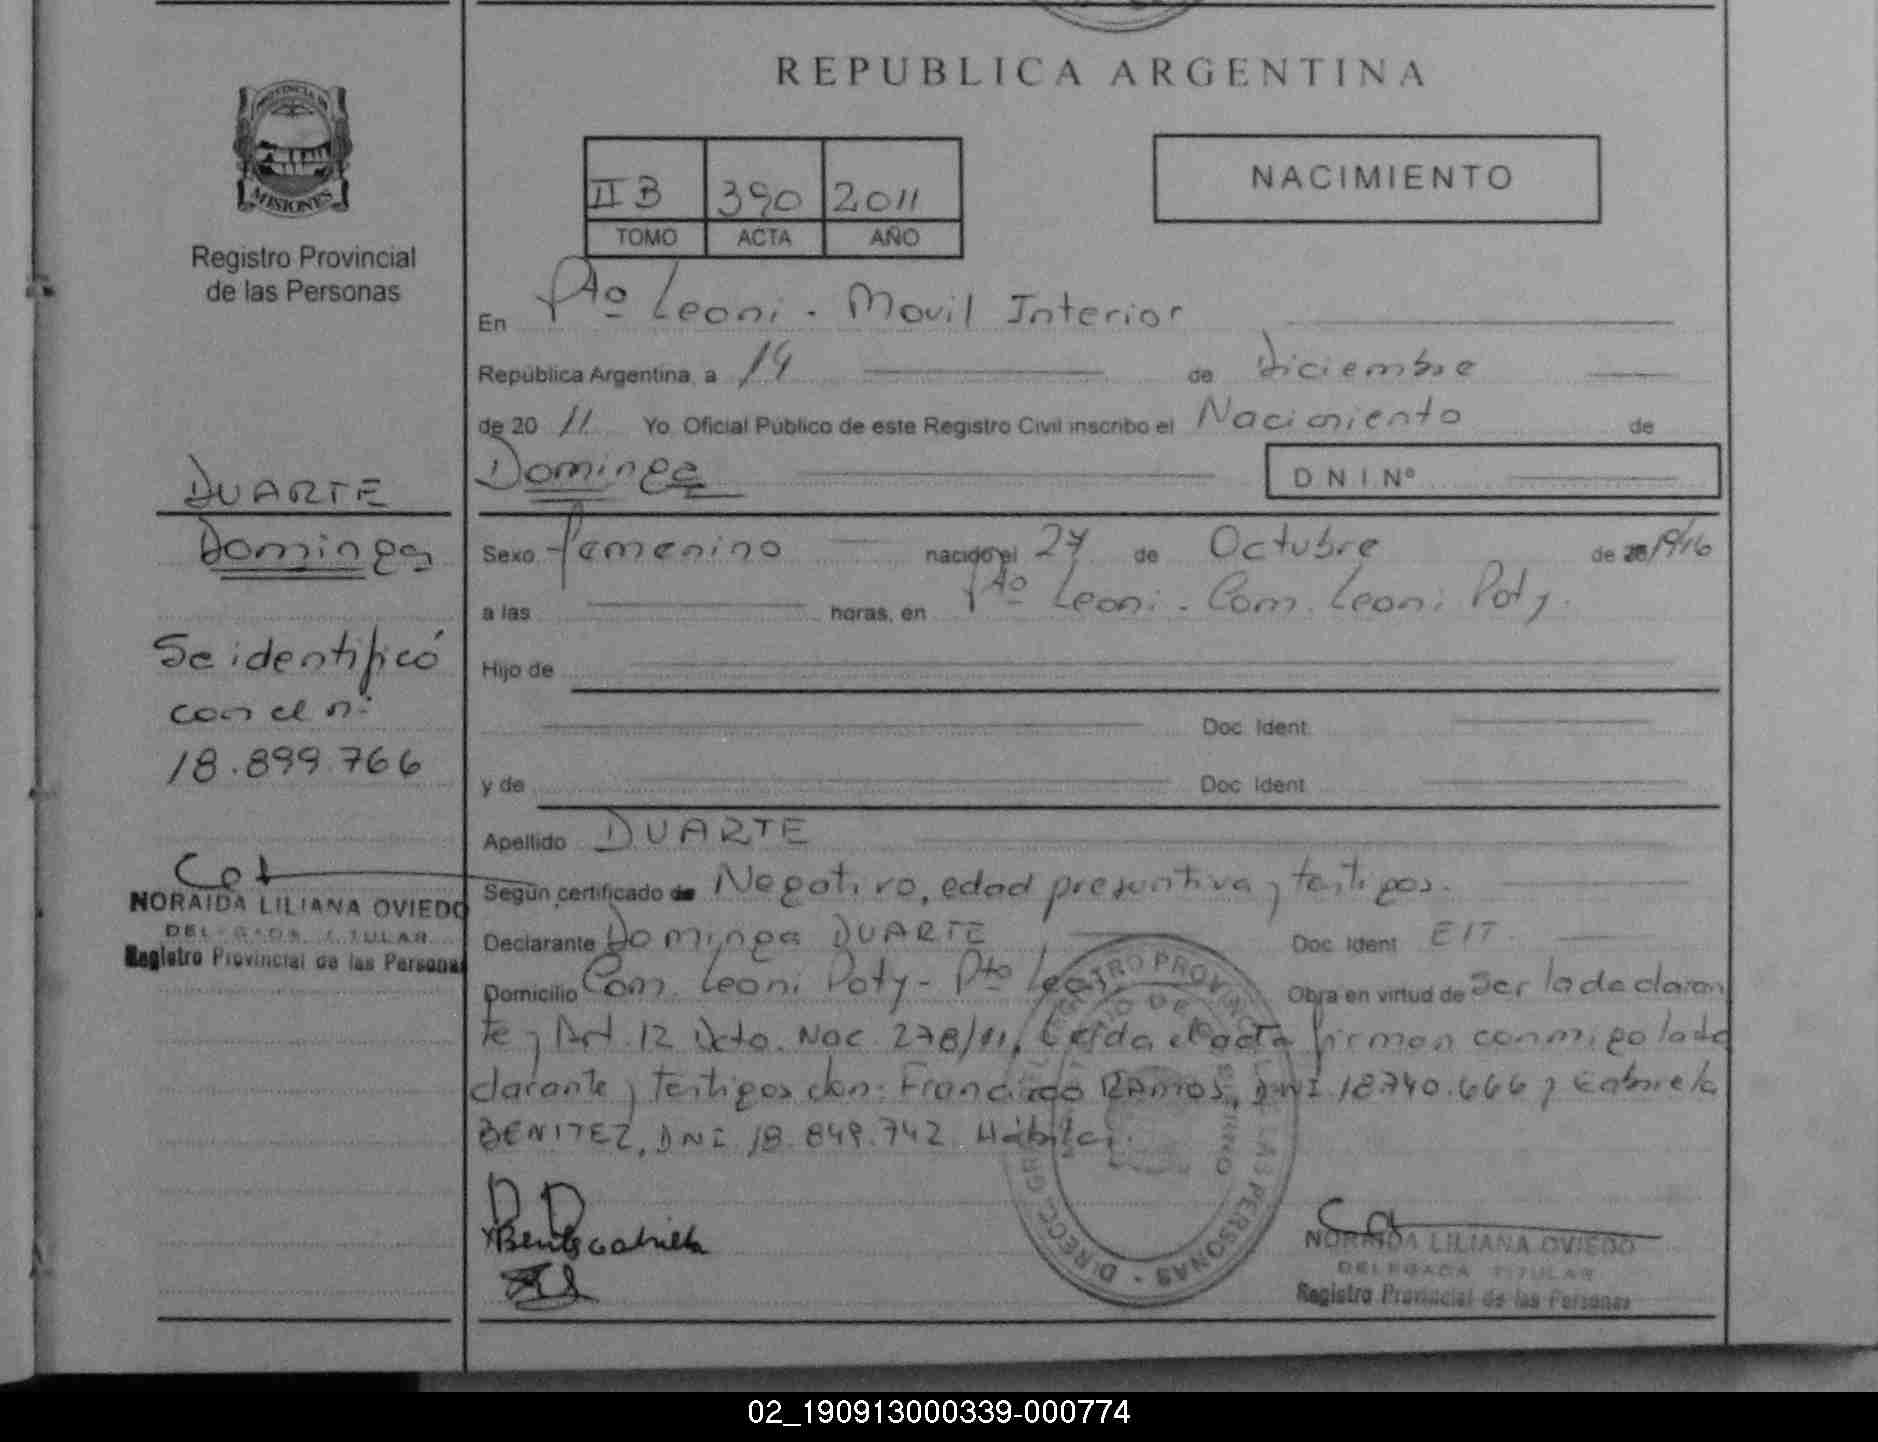 REPUBLICA ARGENTINA
PROVINCIA DE
MISIONES
Registro Provincial
de las Personas
II B 390 2011
TOMO ACTA AÑO
NACIMIENTO
En Pto Leoni - Movil Interior
República Argentina, a 14 de Diciembre
de 20 11 Yo Oficial Público de este Registro Civil inscribo el Nacimiento de
Dominga
D N I Nº
DUARTE
Dominga
Se identificó
con el nº
18.899.766
NORAIDA LILIANA OVIEDO
DELEGADA TITULAR
Registro Provincial de las Personas
Sexo femenino nacido el 27 de Octubre de 1946
a las horas, en Pto Leoni - Com. Leoni Poty.
Hijo de
Doc. Ident.
y de Doc. Ident.
Apellido DUARTE
Según certificado de Negativo, edad presuntiva y testigos.
Declarante Dominga DUARTE Doc. Ident EIT.
Domicilio Com. Leoni Poty - Pto Leoni Obra en virtud de ser la declaran
te y Art. 12 Dcto. Nac. 278/11, Leída el acta firman conmigo la de
clarante y testigos don: Francisco RAMOS, DNI 18.740.666 y Gabriela
BENITEZ, DNI 18.849.742 Hábiles.
D D
Benite Gabriela
NORAIDA LILIANA OVIEDO
DELEGADA TITULAR
Registro Provincial de las Personas
02_190913000339-000774